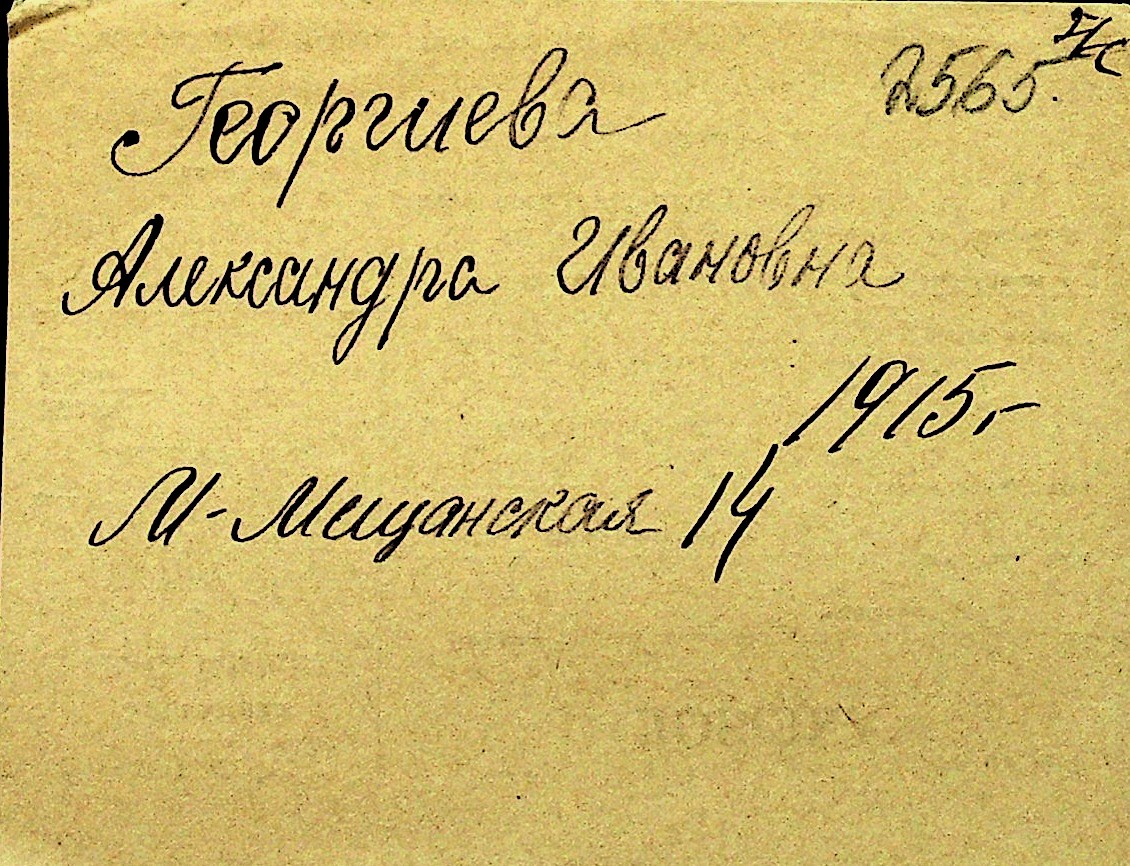 2565.
Георгиева
Александра Ивановна
1915г
М-Мещанская 14